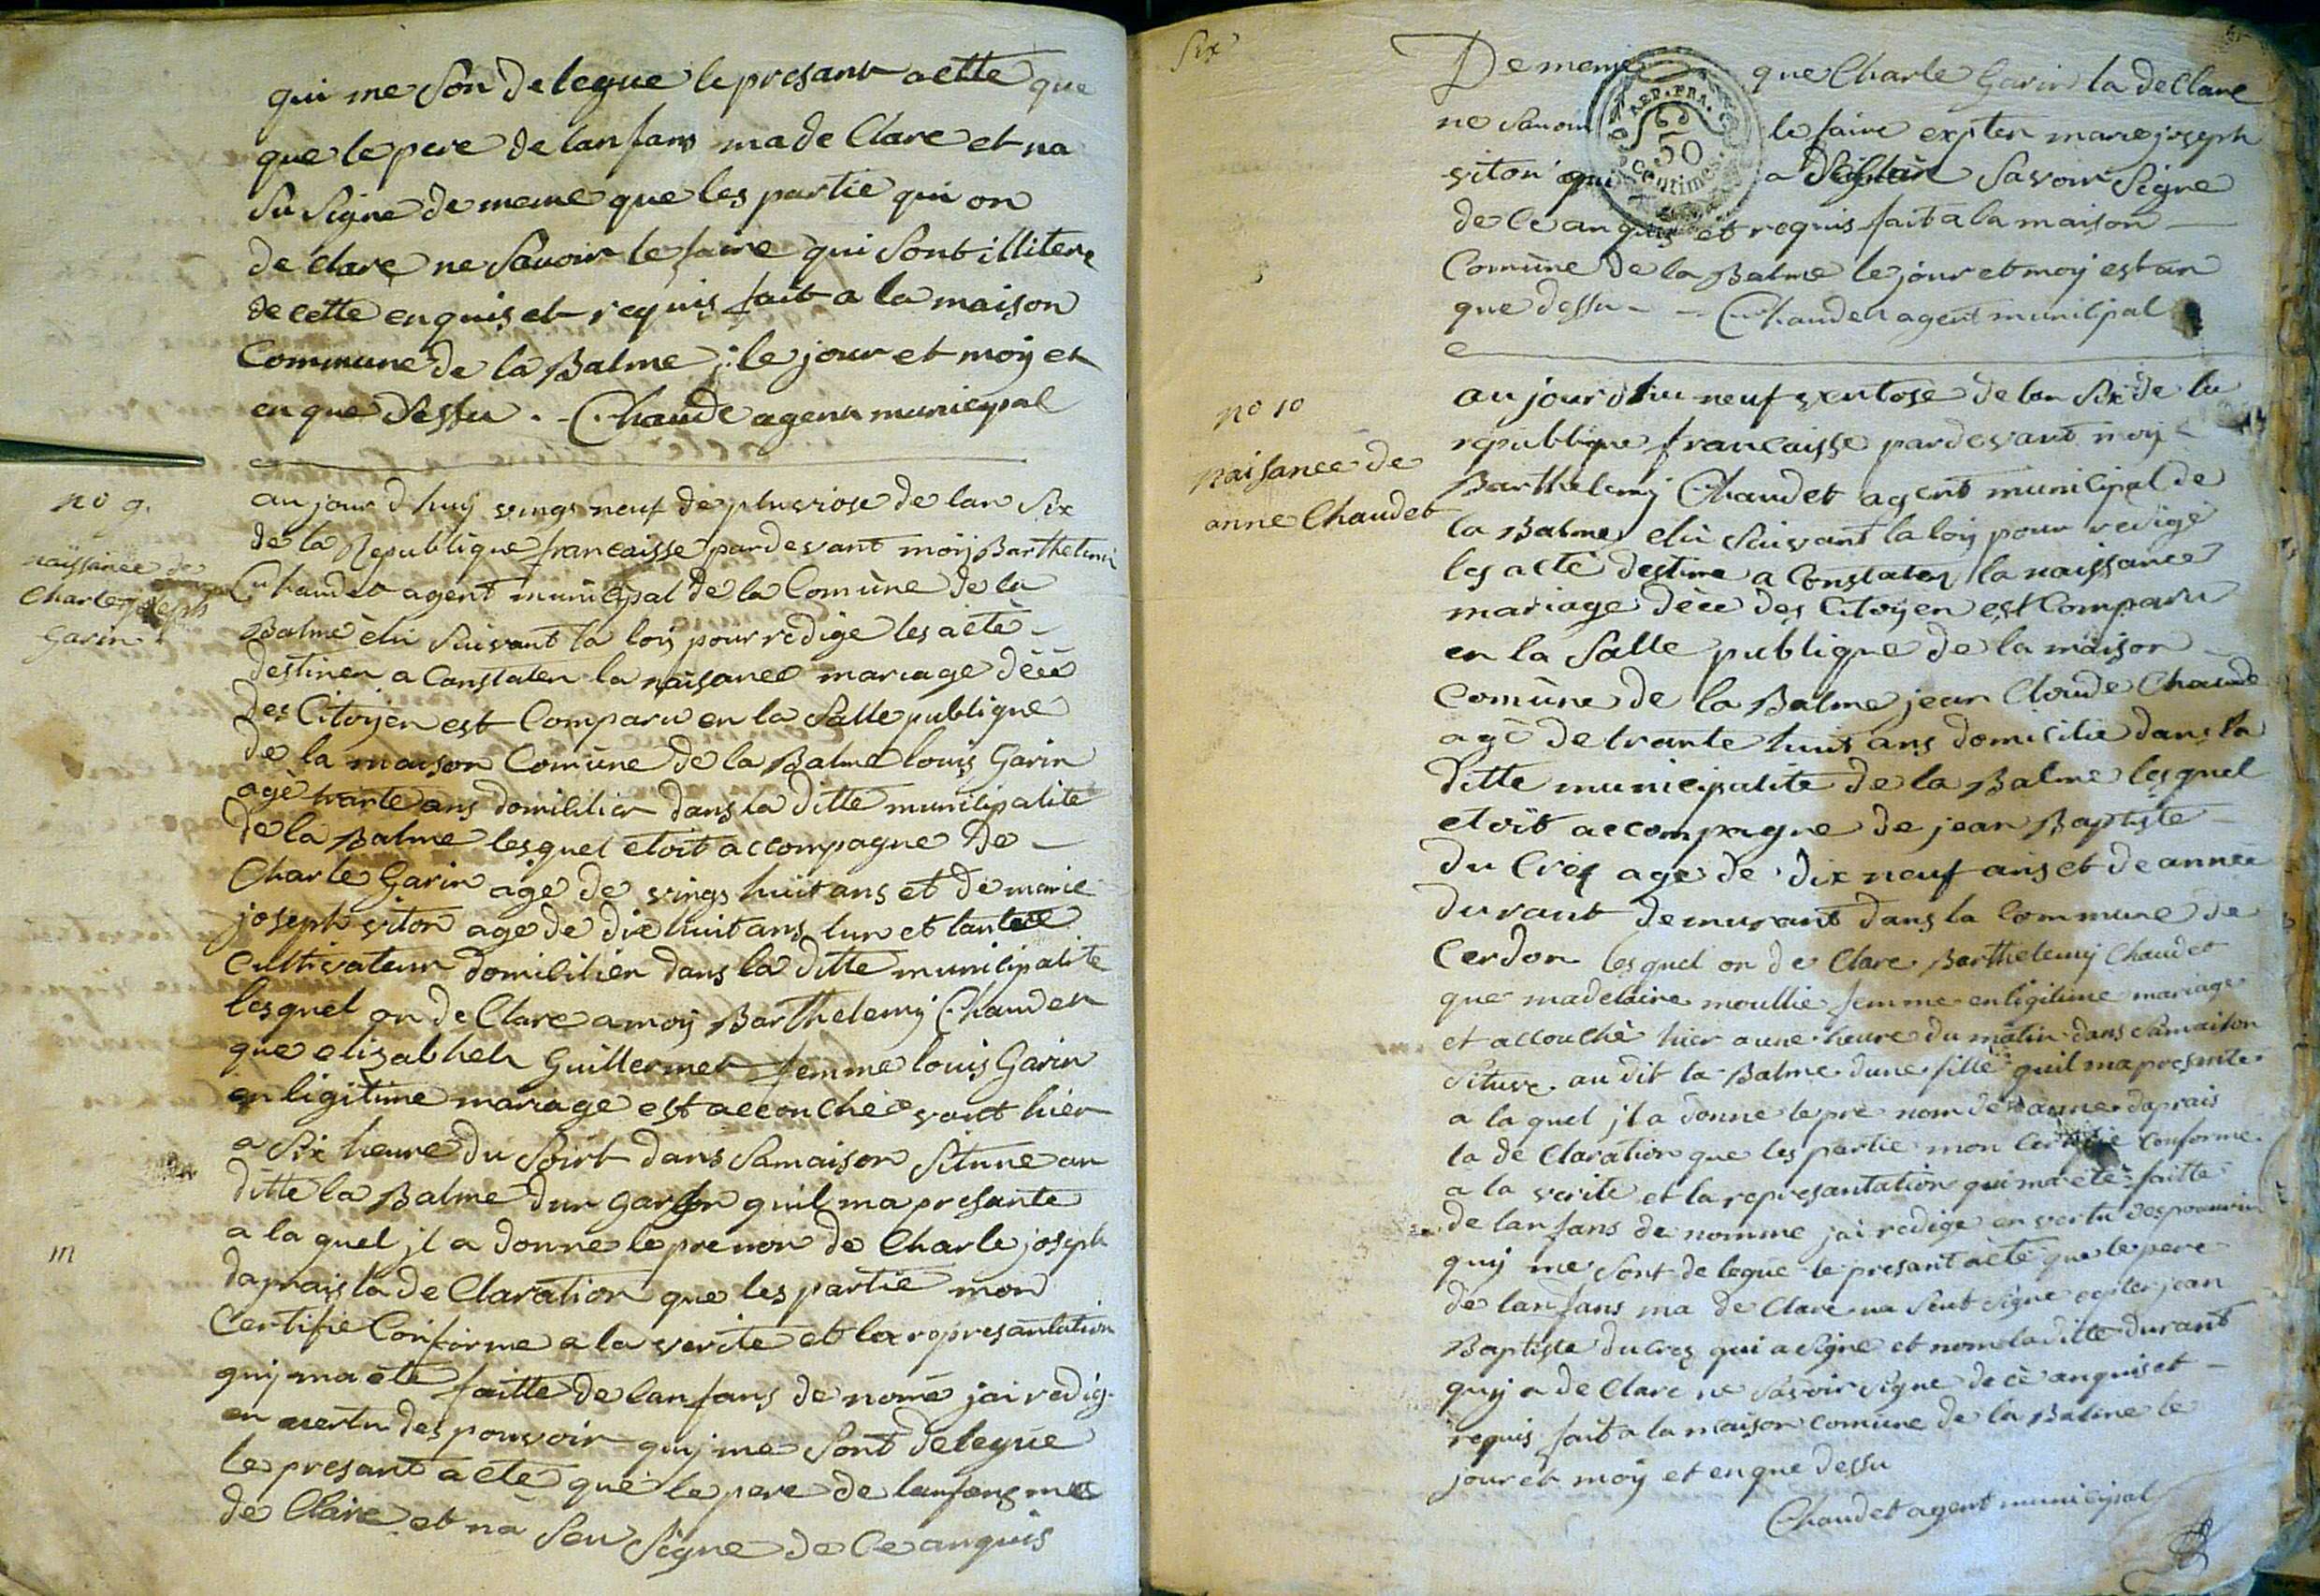 qui me Son delegue le presant actte que
que le pere de lanfans ma de Clare et na
Su Signe de meme que les partie qui on
de clare ne Savoir le faire qui Sont illitere
de cette enquis et requis fait a la maison
Commune de la Balme ; le jour et moy et
en que dessu . - Chaude agent municypal
no 9.
naissance de
Charle joseph
Garin
au jour d huy vings neuf de pluviose de lan Six
de la Republique francaisse pardevant moy Barthelemi
Chaudet agent municipal de la Comune de la
Balme élu Suivant la loy pour redige les acte -
destiner a Constater la naisance mariage décè
des Citoyen est Comparu en la Salle publique
de la maison Comune de la Balme louis Garin
agè trante ans domicilier dans la ditte municipalite
de la Balme lesquel etoit accompagne De -
Charle Garin age de vings huit ans et de marie
joseph viton age de dix huit ans lun et lautere
Cultivateur domicilier dans la ditte municipalite
lesquel on de Clare a moy Barthelemy Chaudet
que elizabheh Guillermet femme louis Garin
en ligitime mariage est accouchée vant hier
a Six heure du Soirt dans Samaison Situue au
ditte la Balme dun garson quil ma presante
a la quel jl a donne le prenon de Charle joseph
daprais la de Claration que les partie mon
Certifie Conforme a la verite et la representation
quy ma ete faitte de lanfans de nomé jai redig
en vertu des pouvoir quj me Sont delegue
le presant acte que le pere de lanfans ma
de Clare et na Seu Signe de Ce anquis
m
Six
De meme que Charle Garin la de Clare
ne Savoir le faire expter marie joseph
viton qui a Savoir Signe
de Ce anquis et requis fait a la maison
Comune de la Balme le jour et moy est an
que dessu - - Chaudet agent municipal
REP. FRA.
50
Centimes.
no 10
naisance de
anne Chaudet
au jour dhu neuf ventose de lan Six de la
republique francaisse pardevant moy
Barthelemy Chaudet agent municipal de
la Balme, elu Suivant la loy pour redige
les acte destine a Constater la naissance
mariage décè des Citoyen est Comparu
en la Salle publique de la maison
Comune de la Balme jean Cloude Chaude
agé de trante huit ans domicilie dans la
ditte municipalite de la Balme lesquel
etoit accompagne de jean Baptiste
du Crez age de dix neuf ans et de anne
durant demurant dans la Commune de
Cerdon lesquel on de Clare Barthelemy Chaudet
que madelaine moullie femme en ligitime mariage
et accouchè hier a une heure du matin dans Samaison
Situee au dit la Balme dune fille quil ma presente
a laquel jl a donne le pre nom de anne daprais
la de Claration que les partie mon Certifie Conforme
a la verite et la represantation qui ma ete faitte
de lanfans de nomme jai redige en vertu des pouvoir
quy me Sont delegue le presant acte que le pere
de lanfans ma de Clare na Seut Signe expter jean
Baptiste du Crez qui a Signe et nom la ditte durant
quy a de Clare ne Savoir Signe de cè anquis et
requis fait a la maison comune de la Balme le
jour et moy et en que dessu
Chaudet agent municipal